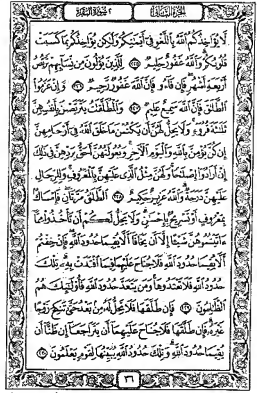 الجزء الثاني
سورة البقرة
لَّا يُؤَاخِذُكُمُ اللَّهُ بِاللَّغْوِ فِي أَيْمَانِكُمْ وَلَٰكِن يُؤَاخِذُكُم بِمَا كَسَبَتْ
قُلُوبُكُمْ وَاللَّهُ غَفُورٌ حَلِيمٌ ﴿٢٢٥﴾ لِّلَّذِينَ يُؤْلُونَ مِن نِّسَائِهِمْ تَرَبُّصُ
أَرْبَعَةِ أَشْهُرٍ فَإِن فَاءُو فَإِنَّ اللَّهَ غَفُورٌ رَّحِيمٌ ﴿٢٢٦﴾ وَإِنْ عَزَمُوا
الطَّلَاقَ فَإِنَّ اللَّهَ سَمِيعٌ عَلِيمٌ ﴿٢٢٧﴾ وَالْمُطَلَّقَاتُ يَتَرَبَّصْنَ بِأَنفُسِهِنَّ
ثَلَاثَةَ قُرُوءٍ وَلَا يَحِلُّ لَهُنَّ أَن يَكْتُمْنَ مَا خَلَقَ اللَّهُ فِي أَرْحَامِهِنَّ
إِن كُنَّ يُؤْمِنَّ بِاللَّهِ وَالْيَوْمِ الْآخِرِ وَبُعُولَتُهُنَّ أَحَقُّ بِرَدِّهِنَّ فِي ذَٰلِكَ
إِنْ أَرَادُوا إِصْلَاحًا وَلَهُنَّ مِثْلُ الَّذِي عَلَيْهِنَّ بِالْمَعْرُوفِ وَلِلرِّجَالِ
عَلَيْهِنَّ دَرَجَةٌ وَاللَّهُ عَزِيزٌ حَكِيمٌ ﴿٢٢٨﴾ الطَّلَاقُ مَرَّتَانِ فَإِمْسَاكٌ
بِمَعْرُوفٍ أَوْ تَسْرِيحٌ بِإِحْسَانٍ وَلَا يَحِلُّ لَكُمْ أَن تَأْخُذُوا مِمَّا
آتَيْتُمُوهُنَّ شَيْئًا إِلَّا أَن يَخَافَا أَلَّا يُقِيمَا حُدُودَ اللَّهِ فَإِنْ خِفْتُمْ
أَلَّا يُقِيمَا حُدُودَ اللَّهِ فَلَا جُنَاحَ عَلَيْهِمَا فِيمَا افْتَدَتْ بِهِ تِلْكَ
حُدُودُ اللَّهِ فَلَا تَعْتَدُوهَا وَمَن يَتَعَدَّ حُدُودَ اللَّهِ فَأُولَٰئِكَ هُمُ
الظَّالِمُونَ ﴿٢٢٩﴾ فَإِن طَلَّقَهَا فَلَا تَحِلُّ لَهُ مِن بَعْدُ حَتَّىٰ تَنكِحَ زَوْجًا
غَيْرَهُ فَإِن طَلَّقَهَا فَلَا جُنَاحَ عَلَيْهِمَا أَن يَتَرَاجَعَا إِن ظَنَّا أَن
يُقِيمَا حُدُودَ اللَّهِ وَتِلْكَ حُدُودُ اللَّهِ يُبَيِّنُهَا لِقَوْمٍ يَعْلَمُونَ ﴿٢٣٠﴾
٣٦